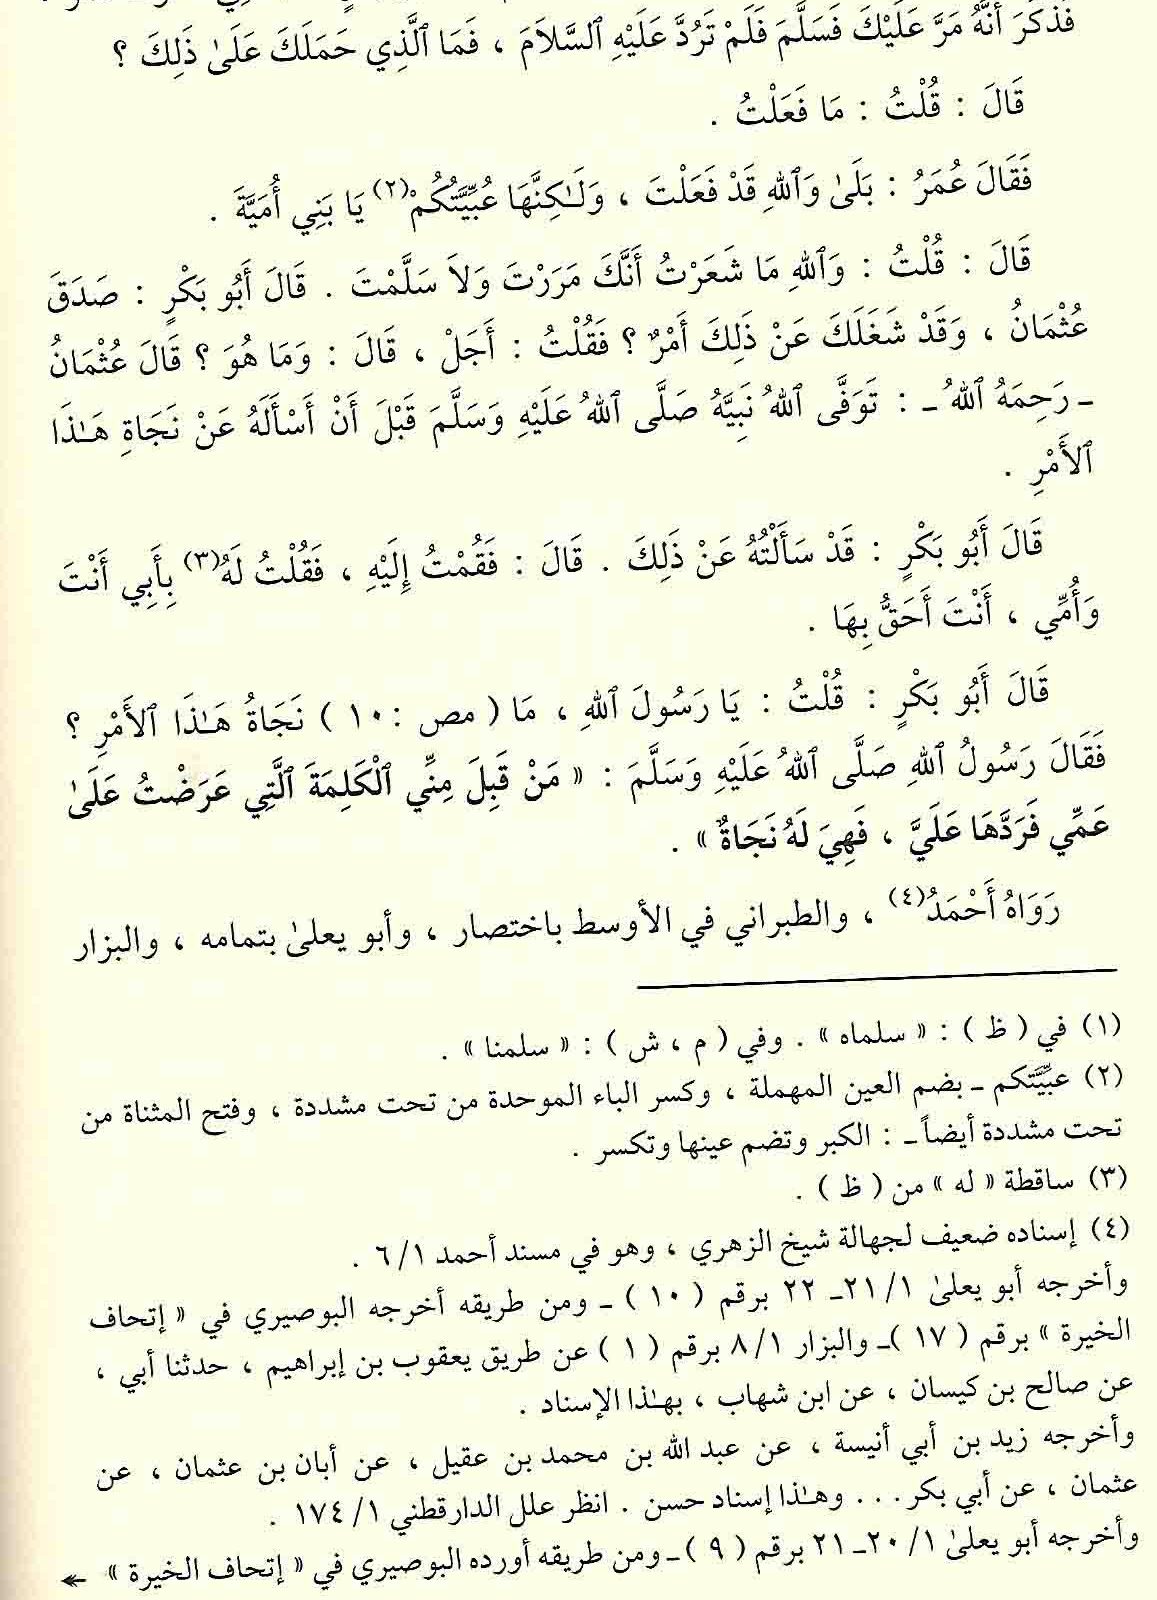 فَذَكَرَ أَنَّهُ مَرَّ عَلَيْكَ فَسَلَّمَ فَلَمْ تَرُدَّ عَلَيْهِ ٱلسَّلاَمَ ، فَمَا ٱلَّذِي حَمَلَكَ عَلَىٰ ذَلِكَ ؟
قَالَ : قُلْتُ : مَا فَعَلْتُ .
فَقَالَ عُمَرُ : بَلَىٰ وَٱللهِ قَدْ فَعَلْتَ ، وَلَـٰكِنَّهَا عُبِّيَّتُكُمْ(٢) يَا بَنِي أُمَيَّةَ .
قَالَ : قُلْتُ : وَٱللهِ مَا شَعَرْتُ أَنَّكَ مَرَرْتَ وَلاَ سَلَّمْتَ . قَالَ أَبُو بَكْرٍ : صَدَقَ
عُثْمَانُ ، وَقَدْ شَغَلَكَ عَنْ ذَلِكَ أَمْرٌ ؟ فَقُلْتُ : أَجَلْ ، قَالَ : وَمَا هُوَ ؟ قَالَ عُثْمَانُ
ـ رَحِمَهُ ٱللهُ ـ : تَوَفَّى ٱللهُ نَبِيَّهُ صَلَّى ٱللهُ عَلَيْهِ وَسَلَّمَ قَبْلَ أَنْ أَسْأَلَهُ عَنْ نَجَاةِ هَـٰذَا
ٱلأَمْرِ .
قَالَ أَبُو بَكْرٍ : قَدْ سَأَلْتُهُ عَنْ ذَلِكَ . قَالَ : فَقُمْتُ إِلَيْهِ ، فَقُلْتُ لَهُ(٣) بِأَبِي أَنْتَ
وَأُمِّي ، أَنْتَ أَحَقُّ بِهَا .
قَالَ أَبُو بَكْرٍ : قُلْتُ : يَا رَسُولَ ٱللهِ ، مَا ( مص : ١٠ ) نَجَاةُ هَـٰذَا ٱلأَمْرِ ؟
فَقَالَ رَسُولُ ٱللهِ صَلَّى ٱللهُ عَلَيْهِ وَسَلَّمَ : « مَنْ قَبِلَ مِنِّي ٱلْكَلِمَةَ ٱلَّتِي عَرَضْتُ عَلَىٰ
عَمِّي فَرَدَّهَا عَلَيَّ ، فَهِيَ لَهُ نَجَاةٌ » .
رَوَاهُ أَحْمَدُ(٤) ، والطبراني في الأوسط باختصار ، وأبو يعلىٰ بتمامه ، والبزار
(١) في ( ظ ) : « سلماه » . وفي ( م ، ش ) : « سلمنا » .
(٢) عبِّيَّتكم ـ بضم العين المهملة ، وكسر الباء الموحدة من تحت مشددة ، وفتح المثناة من
تحت مشددة أيضاً ـ : الكبر وتضم عينها وتكسر .
(٣) ساقطة « له » من ( ظ ) .
(٤) إسناده ضعيف لجهالة شيخ الزهري ، وهو في مسند أحمد ٦/١ .
وأخرجه أبو يعلىٰ ٢١/١ـ ٢٢ برقم ( ١٠ ) ـ ومن طريقه أخرجه البوصيري في « إتحاف
الخيرة » برقم ( ١٧ )ـ والبزار ٨/١ برقم ( ١ ) عن طريق يعقوب بن إبراهيم ، حدثنا أبي ،
عن صالح بن كيسان ، عن ابن شهاب ، بهـٰذا الإسناد .
وأخرجه زيد بن أبي أنيسة ، عن عبد الله بن محمد بن عقيل ، عن أبان بن عثمان ، عن
عثمان ، عن أبي بكر . . . وهـٰذا إسناد حسن . انظر علل الدارقطني ١٧٤/١ .
وأخرجه أبو يعلىٰ ٢٠/١ـ٢١ برقم ( ٩ )ـ ومن طريقه أورده البوصيري في « إتحاف الخيرة » ←